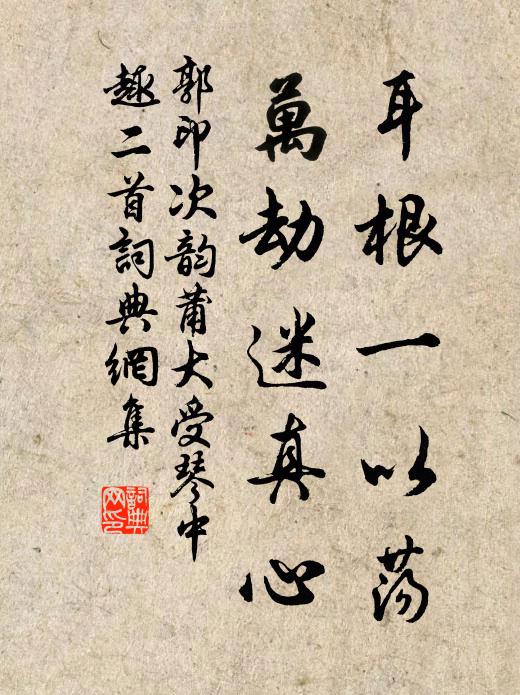 耳根一以蕩
萬劫迷真心
郭印次韵蒲大受琴中
趣二首詞典網集
詞典网印